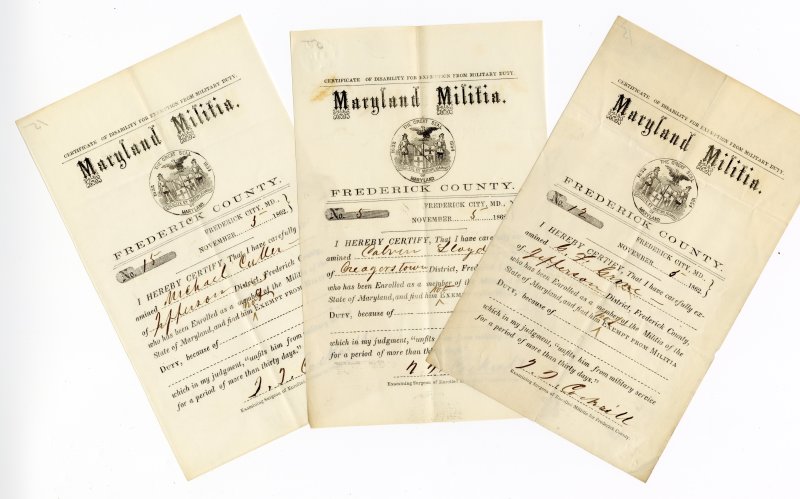 CERTIFICATE OF DISABILITY FOR EXEMPTION FROM MILITARY DUTY.
Maryland Militia.
THE GREAT SEAL
MARYLAND
FREDERICK COUNTY.
No. 15
FREDERICK CITY, MD.
NOVEMBER 5 1862.
I HEREBY CERTIFY, That I have carefully
amined Michael Culler
of Jefferson District, Frederick
who has been Enrolled as a member of the
State of Maryland, and find him not EXEMPT FROM
DUTY, because of
which in my judgment, "unfits him from
for a period of more than thirty days."
Examining Surgeon of Enrolled
CERTIFICATE OF DISABILITY FOR EXEMPTION FROM MILITARY DUTY.
Maryland Militia.
THE GREAT SEAL
1632 1854
MARYLAND
FREDERICK COUNTY.
No. 5
FREDERICK CITY, MD.,
NOVEMBER 5 186
I HEREBY CERTIFY, That I have care
amined Calvin Lloyd
of Creagerstown District,
who has been Enrolled as a member of the
State of Maryland, and find him not EXEMPT
DUTY, because of
which in my judgment, "unfits him
for a period of more than thirty days."
Examining Surgeon of Enrolled
CERTIFICATE OF DISABILITY FOR EXEMPTION FROM MILITARY DUTY.
Maryland Militia.
THE GREAT SEAL
MARYLAND
FREDERICK COUNTY.
No. 12
FREDERICK CITY, MD.
NOVEMBER 5 1862.
I HEREBY CERTIFY, That I have carefully ex-
amined
of Jefferson District, Frederick County,
who has been Enrolled as a member of the Militia of the
State of Maryland, and find him not EXEMPT FROM MILITIA
DUTY, because of
which in my judgment, "unfits him from military service
for a period of more than thirty days."
Examining Surgeon of Enrolled Militia for Frederick County.